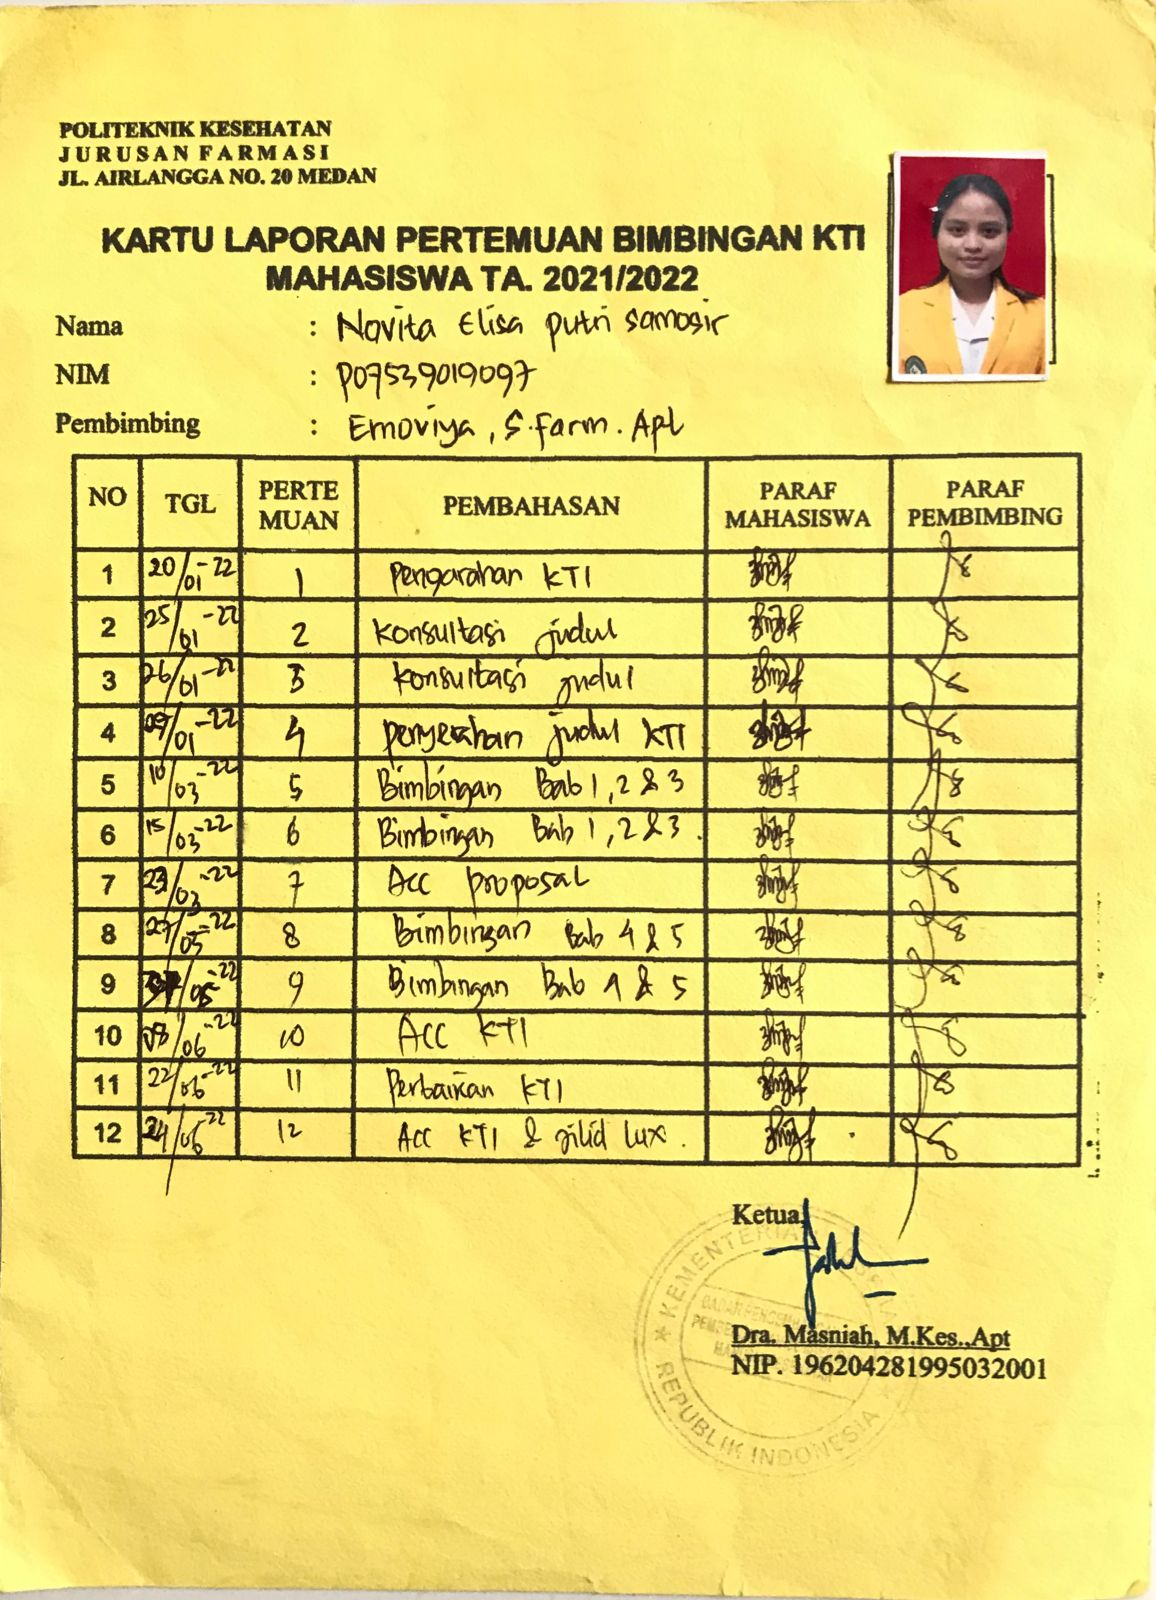 POLITEKNIK KESEHATAN
JURUSAN FARMASI
JL. AIRLANGGA NO. 20 MEDAN
KARTU LAPORAN PERTEMUAN BIMBINGAN KTI
MAHASISWA TA. 2021/2022
Nama : Novita Elisa Putri Samosir
NIM : P07539019097
Pembimbing : Ernoviya, S.Farm. Apt
NO TGL PERTE MUAN PEMBAHASAN PARAF MAHASISWA PARAF PEMBIMBING
1 20/01-22 1 Pengarahan KTI
2 25/01-22 2 Konsultasi judul
3 26/01-22 3 Konsultasi judul
4 09/01-22 4 Penyerahan judul KTI
5 10/03-22 5 Bimbingan Bab 1, 2 & 3
6 15/03-22 6 Bimbingan Bab 1, 2 & 3.
7 /03-22 7 Acc proposal
8 27/05-22 8 Bimbingan Bab 4 & 5
9 /05-22 9 Bimbingan Bab 4 & 5
10 08/06-22 10 ACC KTI
11 22/06-22 11 Perbaikan KTI
12 24/06-22 12 Acc KTI & jilid lux.
Ketua,
KEMENTERIAN
REPUBLIK INDONESIA
Dra. Masniah, M.Kes.,Apt
NIP. 196204281995032001